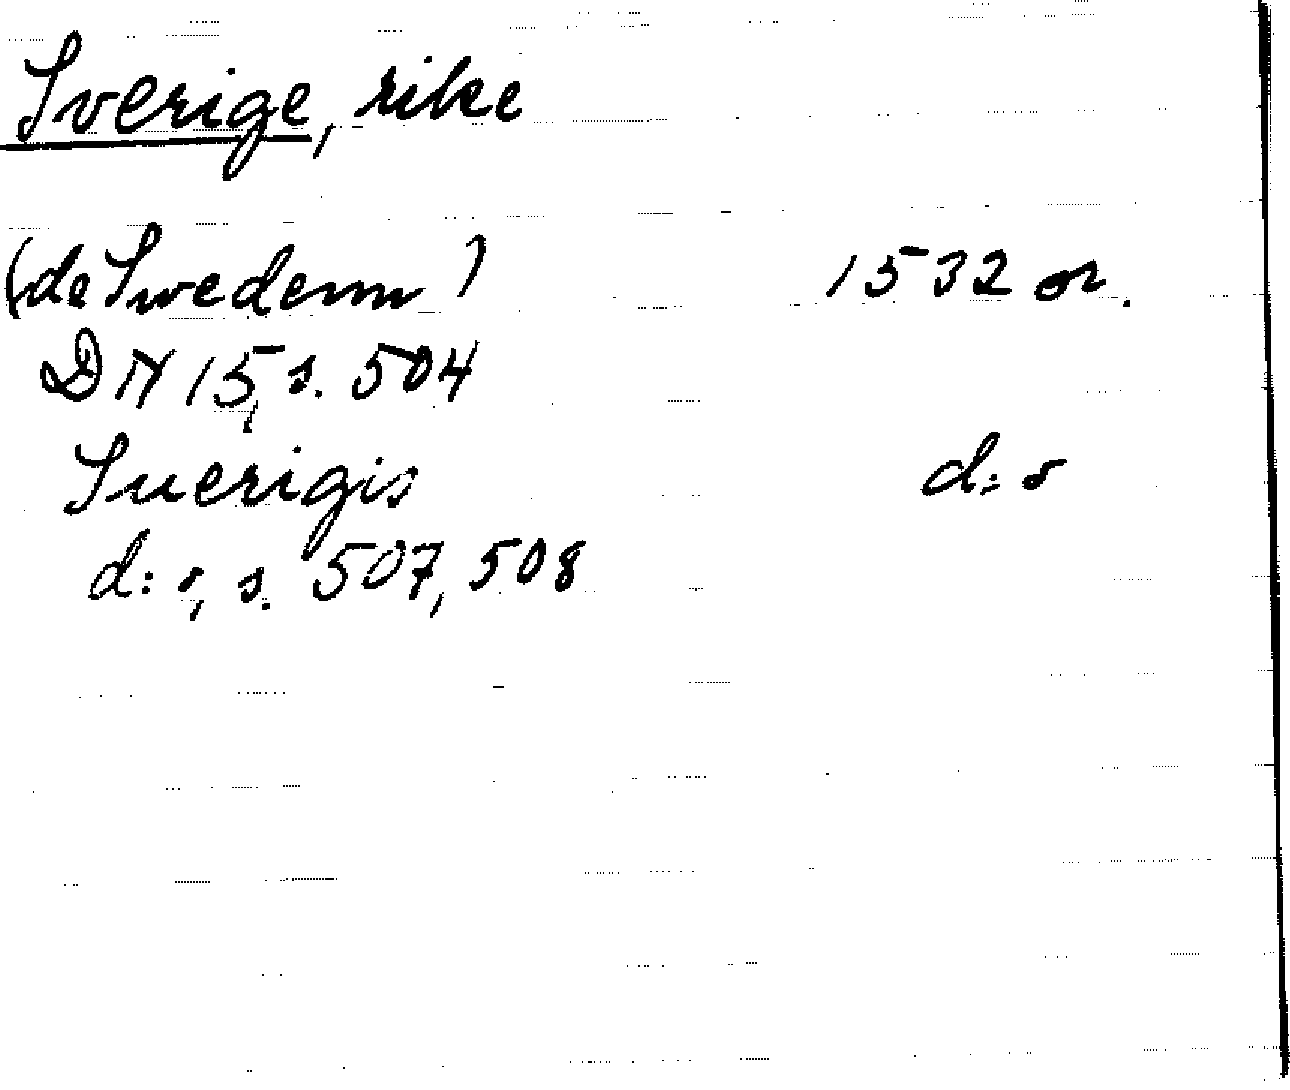 Sverige, rike
(de Swedenn) 1532 or.
DN 15, s. 504
Suerigis d:o
d:o, s. 507, 508